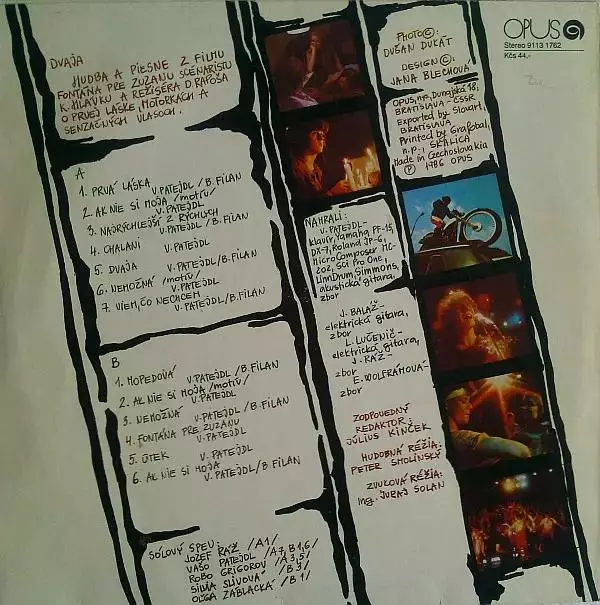 DVAJA
HUDBA A PIESNE Z FILMU
FONTÁNA PRE ZUZANU SCENÁRISTU
K. HLAVKU A REŽISÉRA D. RAPOŠA
O PRVEJ LÁSKE, MOTORKÁCH A
SENZAČNÝCH VLASOCH.
A
1. PRVÁ LÁSKA V. PATEJDL / B. FILAN
2. AK NIE SI MOJA /motív/
V. PATEJDL
3. NAJRÝCHLEJŠÍ Z RÝCHLYCH
V. PATEJDL / B. FILAN
4. CHALANI V. PATEJDL
5. DVAJA V. PATEJDL / B. FILAN
6. NEMOŽNÁ /motív/
V. PATEJDL
7. VIEM, ČO NECHCEM
V. PATEJDL / B. FILAN
B
1. MOPEDOVÁ
V. PATEJDL / B. FILAN
2. AK NIE SI MOJA /motív/
V. PATEJDL
3. NEMOŽNÁ V. PATEJDL / B. FILAN
4. FONTÁNA PRE ZUZANU
V. PATEJDL
5. ÚTEK V. PATEJDL
6. AK NIE SI MOJA
V. PATEJDL / B. FILAN
SÓLOVÝ SPEV:
JOZEF RÁŽ /A1/
VAŠO PATEJDL /A7, B1,6/
ROBO GRIGOROV /A3,5/
SILVIA SLIVOVÁ /B3/
OĽGA ZÁBLACKÁ /B1/
NAHRALI:
V. PATEJDL -
klavír, Yamaha PF-15,
DX-7, Roland JP-6,
MicroComposer MC-
202, Sci Pro One,
LinnDrum, Simmons,
akustická gitara,
zbor
J. BALÁŽ -
elektrická gitara,
zbor
L. LUČENIČ -
elektrická gitara,
J. RÁŽ -
zbor
E. WOLFRAMOVÁ -
zbor
ZODPOVEDNÝ
REDAKTOR:
JÚLIUS KINČEK
HUDOBNÁ RÉŽIA:
PETER SMOLINSKÝ
ZVUKOVÁ RÉŽIA:
Ing. JURAJ SOLAN
PHOTO ©:
DUŠAN DUKÁT
DESIGN ©:
JANA BLECHOVÁ
OPUS, n.p., Dunajská 18,
BRATISLAVA - ČSSR
Exported by Slovart,
BRATISLAVA
Printed by Grafobal,
n.p., SKALICA
Made in Czechoslovakia
Ⓟ 1986 OPUS
OPUS
Stereo 9113 1762
Kčs 44,-